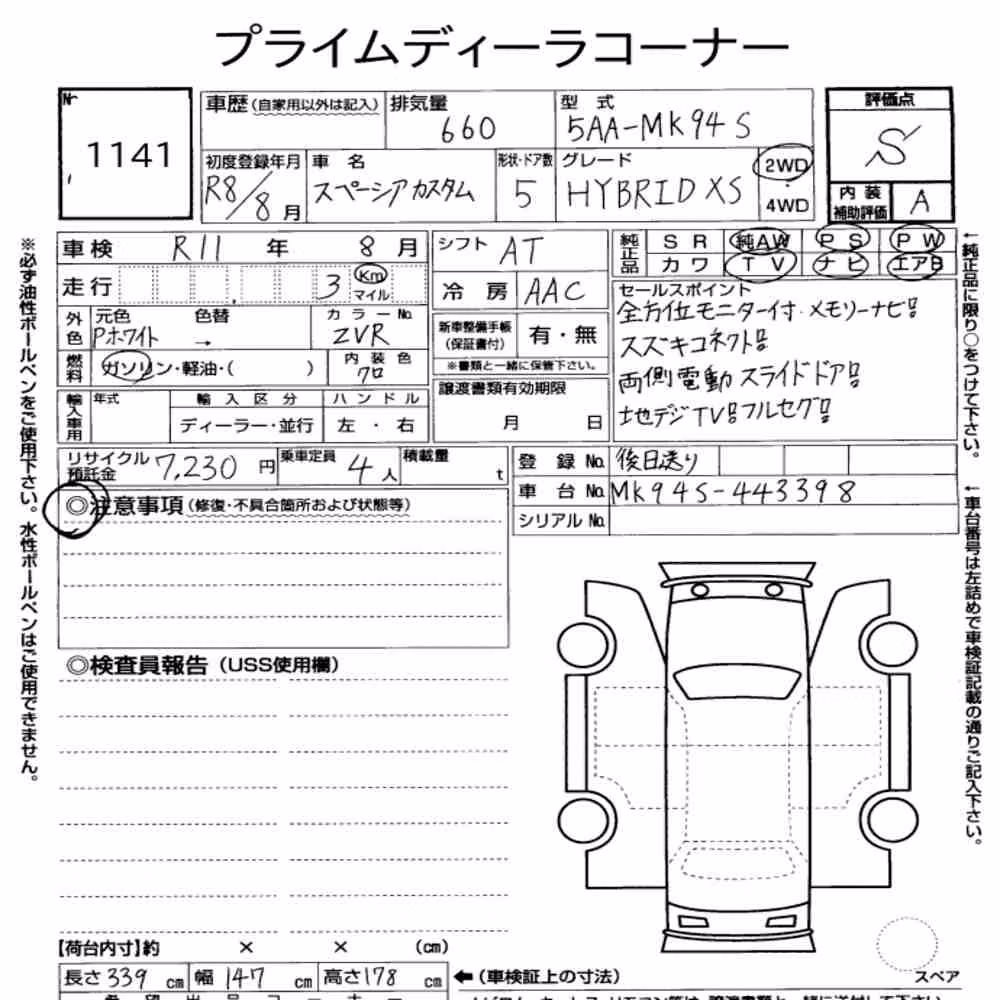 プライムディーラコーナー
№ 1141
車歴(自家用以外は記入) 排気量 660 型式 5AA-MK94S
初度登録年月 R8/8月 車名 スペーシアカスタム 形状・ドア数 5 グレード HYBRID XS 2WD・4WD
評価点 S
内装補助評価 A
車検 R11年 8月 シフト AT
純正品 SR 純AW PS PW
カワ TV ナビ エアB
走行 3 Km マイル 冷房 AAC
外色 元色 Pホワイト 色替 → カラーNo. ZVR
新車整備手帳(保証書付) 有・無
※書類と一緒に保管下さい。
燃料 ガソリン・軽油・( ) 内装色 クロ
譲渡書類有効期限 月 日
セールスポイント
全方位モニター付・メモリーナビ!!
スズキコネクト!!
両側電動スライドドア!!
地デジTV!!フルセグ!!
輸入車用 年式 輸入区分 ハンドル
ディーラー・並行 左・右
リサイクル預託金 7,230円 乗車定員 4人 積載量 t
登録No. 後日送り
車台No. MK94S-443398
シリアルNo.
◎注意事項(修復・不具合箇所および状態等)
◎検査員報告(USS使用欄)
【荷台内寸】約 × × (cm)
長さ339cm 幅147cm 高さ178cm ←(車検証上の寸法)
スペア
※必ず油性ボールペンをご使用下さい。水性ボールペンはご使用できません。
←純正品に限り○をつけて下さい。
←車台番号は左詰めで車検証記載の通りご記入下さい。